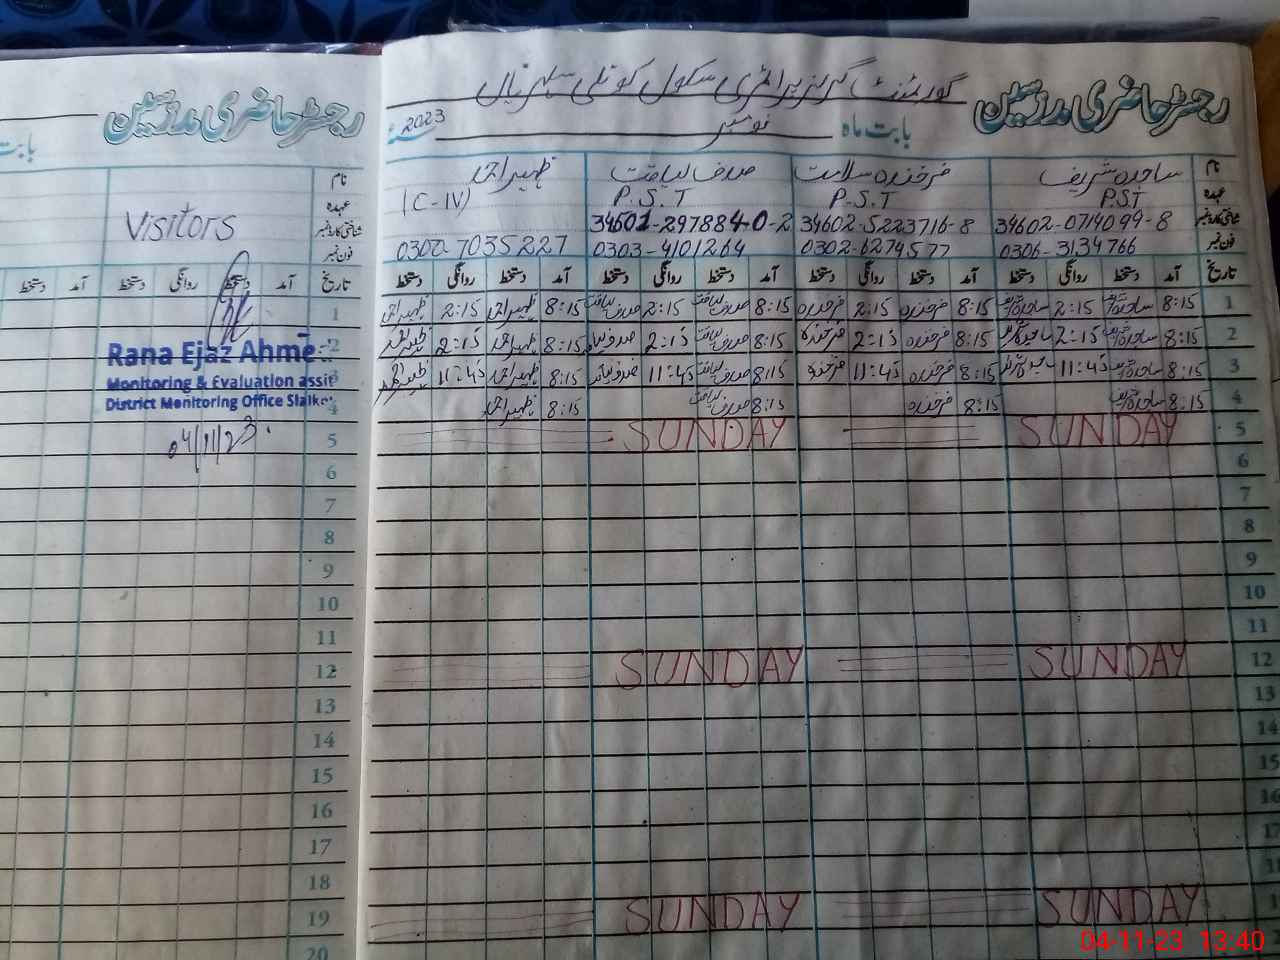 رجسٹر حاضری مدرسین
گورنمنٹ گرلز پرائمری سکول کوٹلی
رجسٹر حاضری مدرسین
بابت ماہ نومبر 2023ء
بابت
نام ساجدہ شریف فرخندہ سلامت صدف لیاقت ظہیر احمد
عہدہ P.S.T P.S.T P.S.T (C-IV)
شناختی کارڈ نمبر 34602-0714099-8 34602-5223716-8 34601-2978840-2
فون نمبر 0306-3134766 0302-6274577 0303-4101264 0300-7035227
تاریخ آمد دستخط روانگی دستخط آمد دستخط روانگی دستخط آمد دستخط روانگی دستخط آمد دستخط روانگی دستخط
1 8:15 ساجدہ شریف 2:15 ساجدہ شریف 8:15 فرخندہ 2:15 فرخندہ 8:15 صدف لیاقت 2:15 صدف لیاقت 8:15 ظہیر احمد 2:15 ظہیر احمد
2 8:15 ساجدہ شریف 2:15 ساجدہ شریف 8:15 فرخندہ 2:15 فرخندہ 8:15 صدف لیاقت 2:15 صدف لیاقت 8:15 ظہیر احمد 2:15 ظہیر احمد
3 8:15 ساجدہ شریف 11:45 ساجدہ شریف 8:15 فرخندہ 11:45 فرخندہ 8:15 صدف لیاقت 11:45 صدف لیاقت 8:15 ظہیر احمد 11:45 ظہیر احمد
4 8:15 ساجدہ شریف 8:15 فرخندہ 8:15 صدف لیاقت 8:15 ظہیر احمد
5 SUNDAY SUNDAY
6
7
8
9
10
11
12 SUNDAY SUNDAY
13
14
15
16
SUNDAY SUNDAY
نام
عہدہ
شناختی کارڈ نمبر
Visitors
فون نمبر
تاریخ آمد دستخط روانگی دستخط آمد دستخط
1
2
3
4
Rana Ejaz Ahme
Monitoring & Evaluation assit
District Monitoring Office Sialko
04/11/23
5
6
7
8
9
10
11
12
13
14
15
16
17
18
19
20
04-11-23 13:40